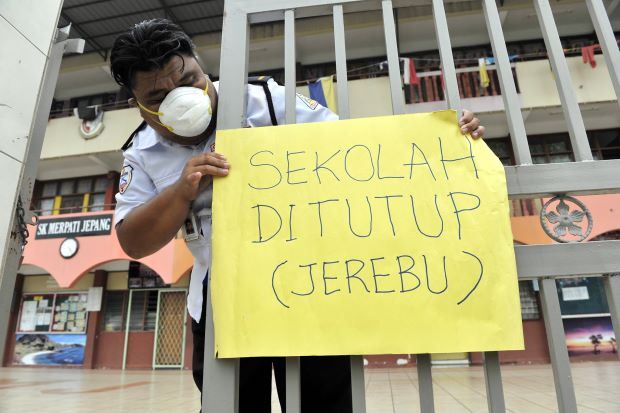 SEKOLAH
DITUTUP
(JEREBU)
SK MERPATI JEPANG